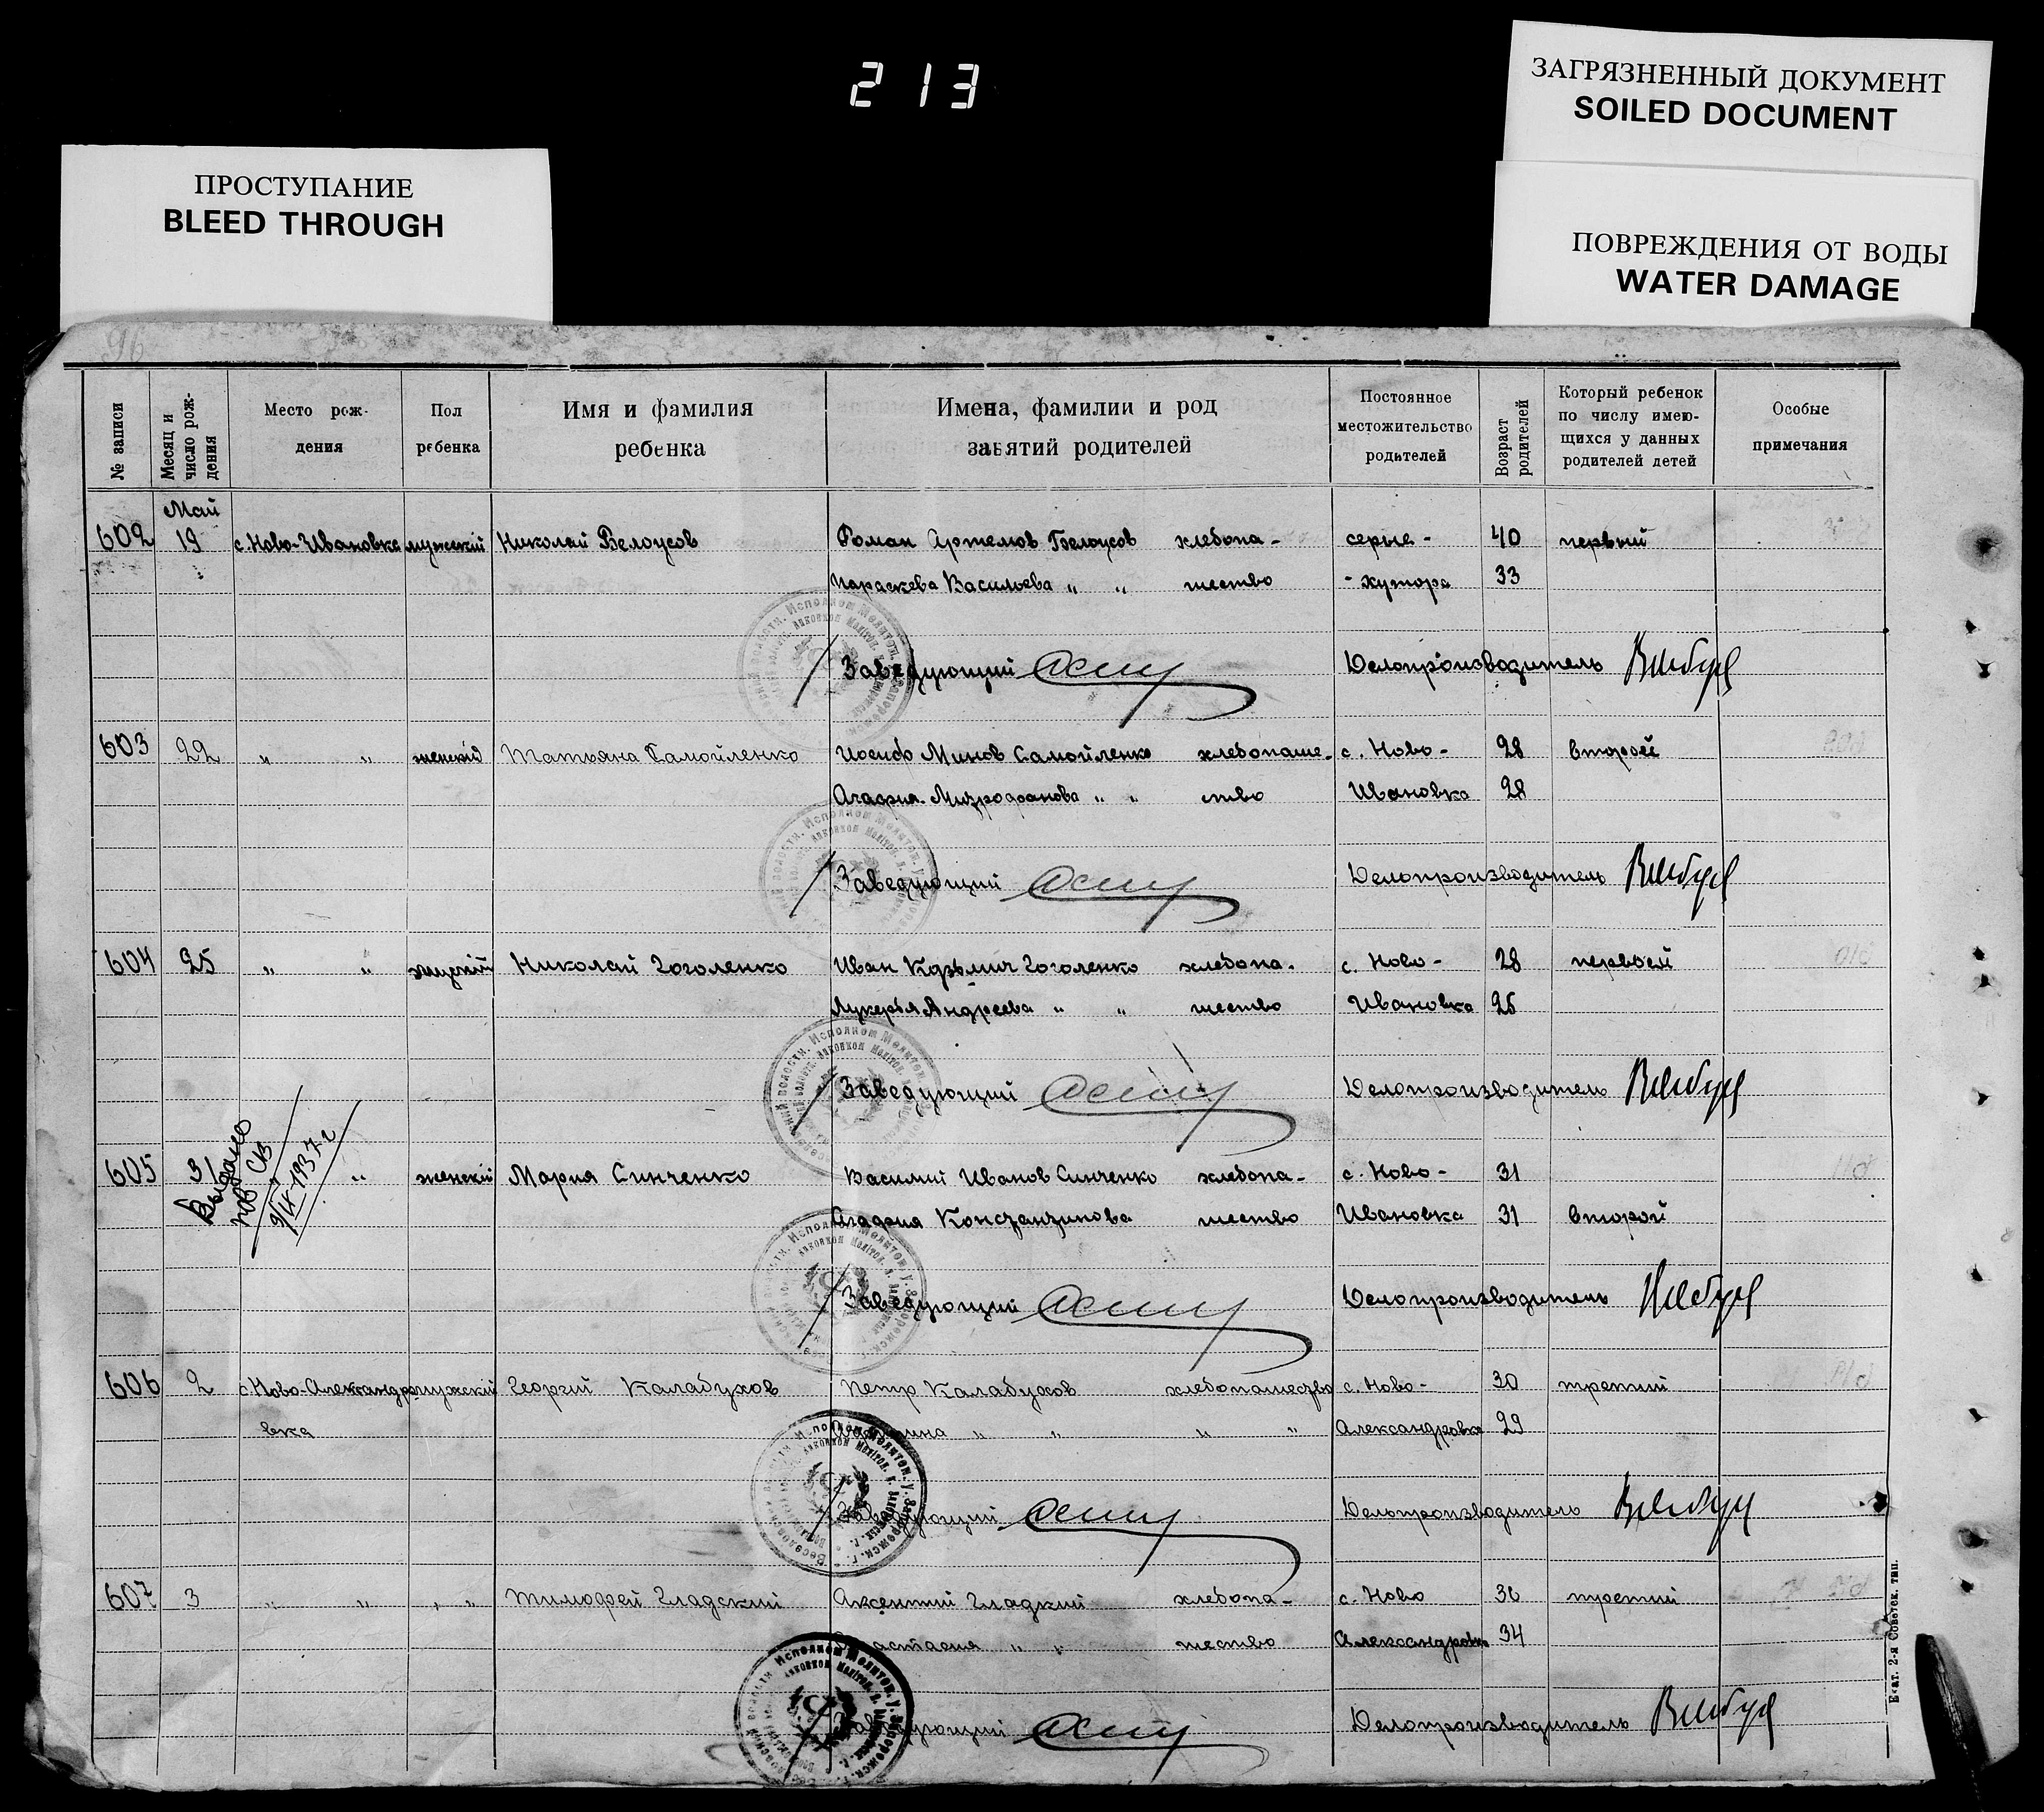 213
ЗАГРЯЗНЕННЫЙ ДОКУМЕНТ
SOILED DOCUMENT
ПРОСТУПАНИЕ
BLEED THROUGH
ПОВРЕЖДЕНИЯ ОТ ВОДЫ
WATER DAMAGE
96
№ записи
Месяц и число рождения
Место рождения
Пол ребенка
Имя и фамилия ребенка
Имена, фамилии и род занятий родителей
Постоянное местожительство родителей
Возраст родителей
Который ребенок по числу имеющихся у данных родителей детей
Особые примечания
Май
602 19 с. Ново-Ивановка мужский Николай Белоусов Роман Артемов Белоусов хлебопа- серые- 40 первый
Параскева Васильева " " шество -хутора 33
Заведующий Делопроизводитель
603 22 " " женский Татьяна Самойленко Иосиф Минов Самойленко хлебопаше- с. Ново- 28 второй
Агафия Митрофанова " " ство Ивановка 28
Заведующий Делопроизводитель
604 25 " " мужский Николай Гоголенко Иван Козьмич Гоголенко хлебопа- с. Ново- 28 первый
Лукерья Андреева " " шество Ивановка 25
Заведующий Делопроизводитель
Выдано
пов. СВ
9/IX-1937 г
605 31 " женский Мария Синченко Василий Иванов Синченко хлебопа- с. Ново- 31
Агафия Константинова шество Ивановка 31 второй
Заведующий Делопроизводитель
606 2 с. Ново-Александро- мужский Георгий Калабухов Петр Калабухов хлебопашество с. Ново- 30 третий
вка " " " " Александровка 29
Заведующий Делопроизводитель
607 3 " " " " Тимофей Гладкий Аксентий Гладкий хлебопа- с. Ново 36 третий
" " шество Александровка 34
Заведующий Делопроизводитель
Екат. 2-я Советск. тип.